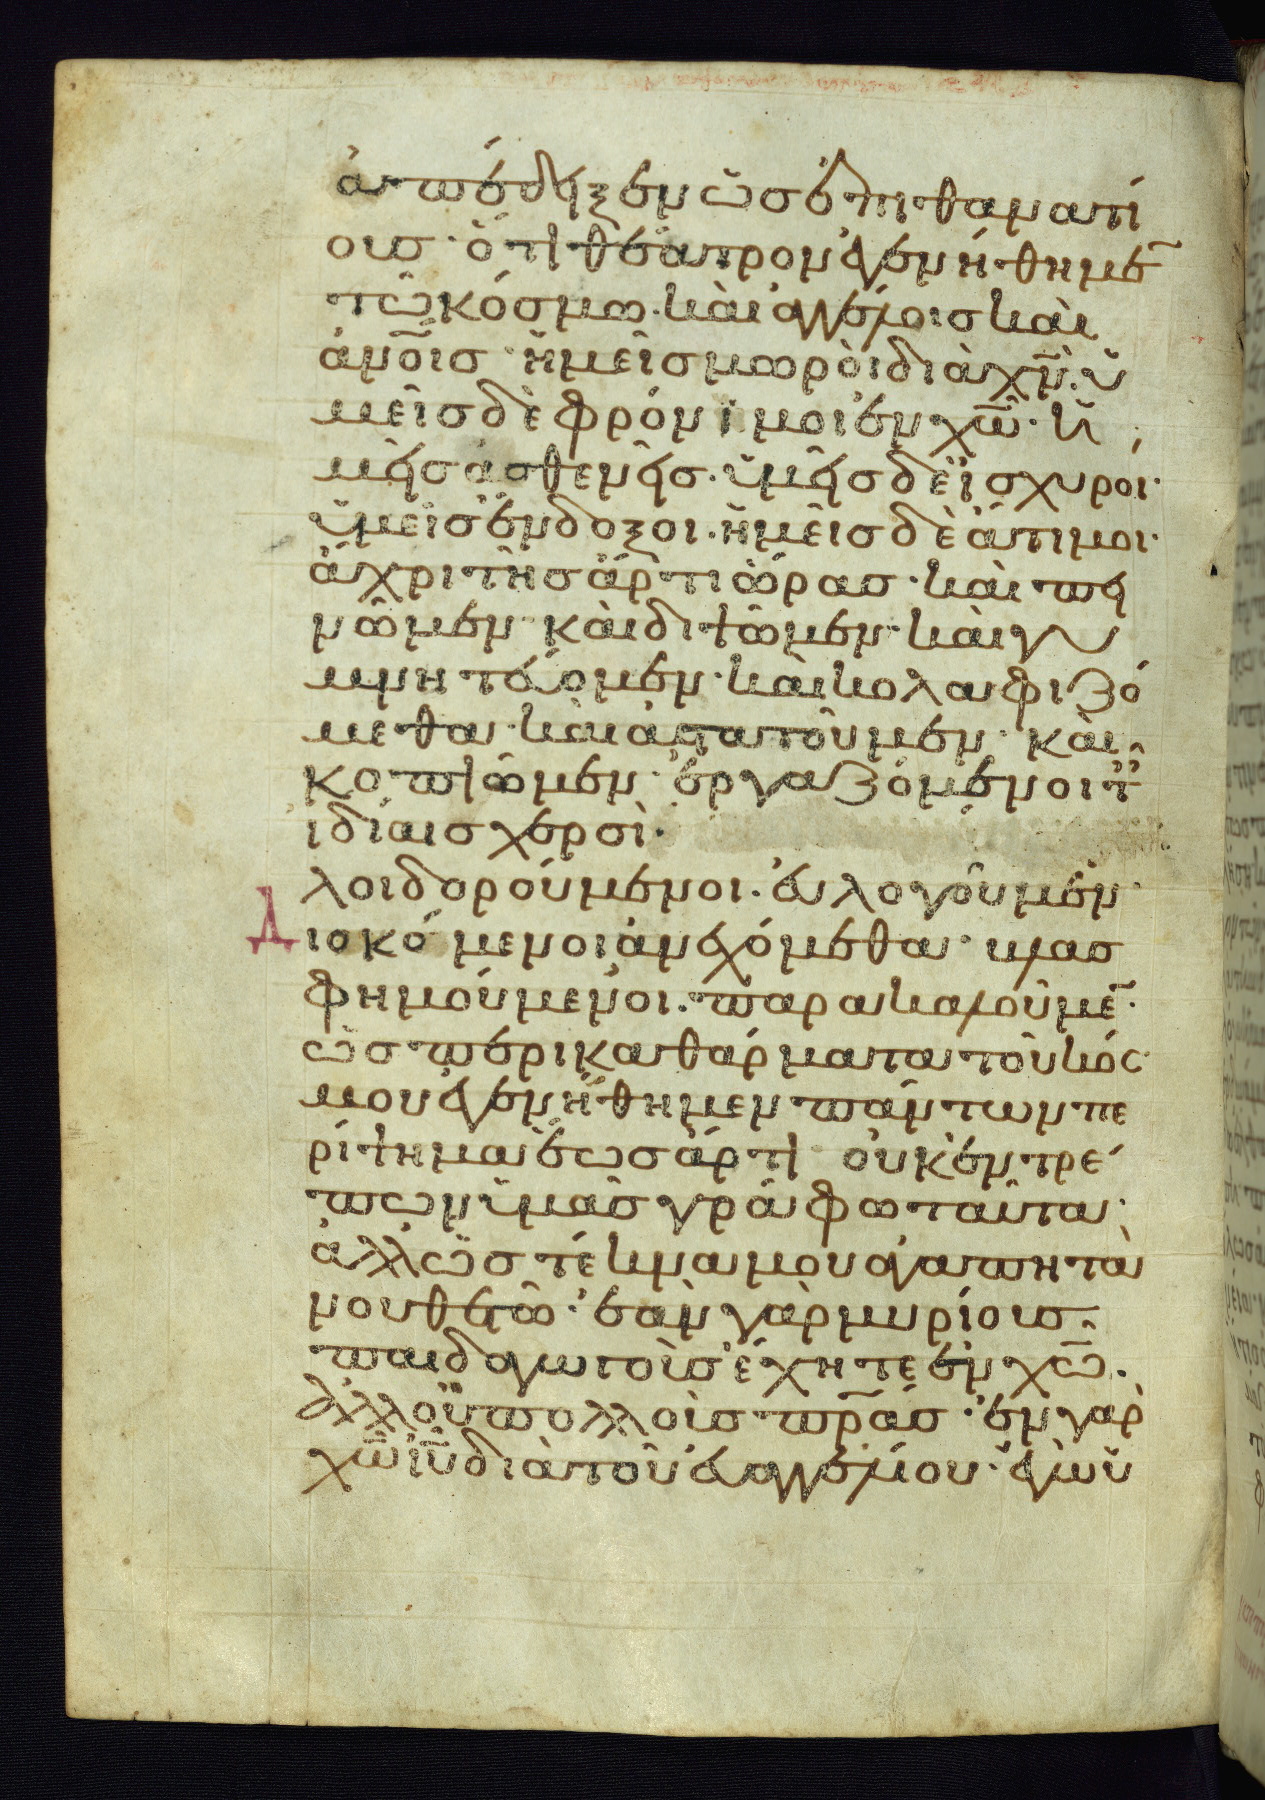 ἀπόδηξεν ὡσ ἐπιθανατί
ουσ· ὅτι θέατρον ἐγενήθημε̅
τῶ κόσμω· καὶ ἀγγέλοισ καὶ
ἀνο̅ισ· ἡμεῖσ μωρὸι διὰ χν̅· ὑ
μεῖσ δὲ φρόνιμοι ἐν χω̅· ἡ
μῆσ ἀσθενῆσ· ὑμῆσ δὲ ἰσχυρόι·
ὑμεῖσ ἔνδοξοι· ἡμεῖσ δὲ ἄτιμοι·
ἄχρι τῆσ ἄρτι ὥρασ· καὶ πει
νῶμεν καὶ διψῶμεν· καὶ γυ
μνητέυομεν· καὶ κολαφιζό
μεθα· καὶ ἀστατοῦμεν· καὶ
κοπιῶμεν· ἐργαζόμενοι τ
ἰδίαισ χερσὶ·
λοιδορούμενοι· ἐυλογοῦμεν·
Διοκόμενοι ἀνεχόμεθα· βλασ
φημούμενοι· παρακαλοῦμε̅·
ὡσ περικαθάρματα τοῦ κόσ
μου ἐγενήθημεν πάντων πε
ρίψημα ἕωσ ἄρτι ὀυκ ἐντρέ
πων ὑμᾶσ γράφω ταῦτα·
ἀλλ ὡσ τέκνα μου ἀγαπητὰ
νουθετῶ· ἐὰν γὰρ μυρίουσ
παιδαγωγοὺσ ἔχητε ἐν χω̅·
ἀλλ ὀυ πολλοὺσ πρ̅ασ· ἐν γὰρ
χω̅ ιυ̅ διὰ τοῦ ἐυαγγελίου· ἐγὼ ὑ